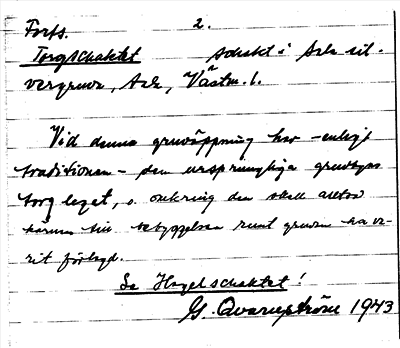 Forts. 2.
Torgschaktet schakt i Sala sil-
vergruva, Sala, Västm. l.
Vid denna gruvöppning har - enligt
traditionen - den ursprungliga gruvbyns
torg legat, o. omkring den skall alltså
kärnan till bebyggelsen runt gruvan ha va-
rit förlagd.
Se Hagelschaktet!
G. Qvarnström 1943